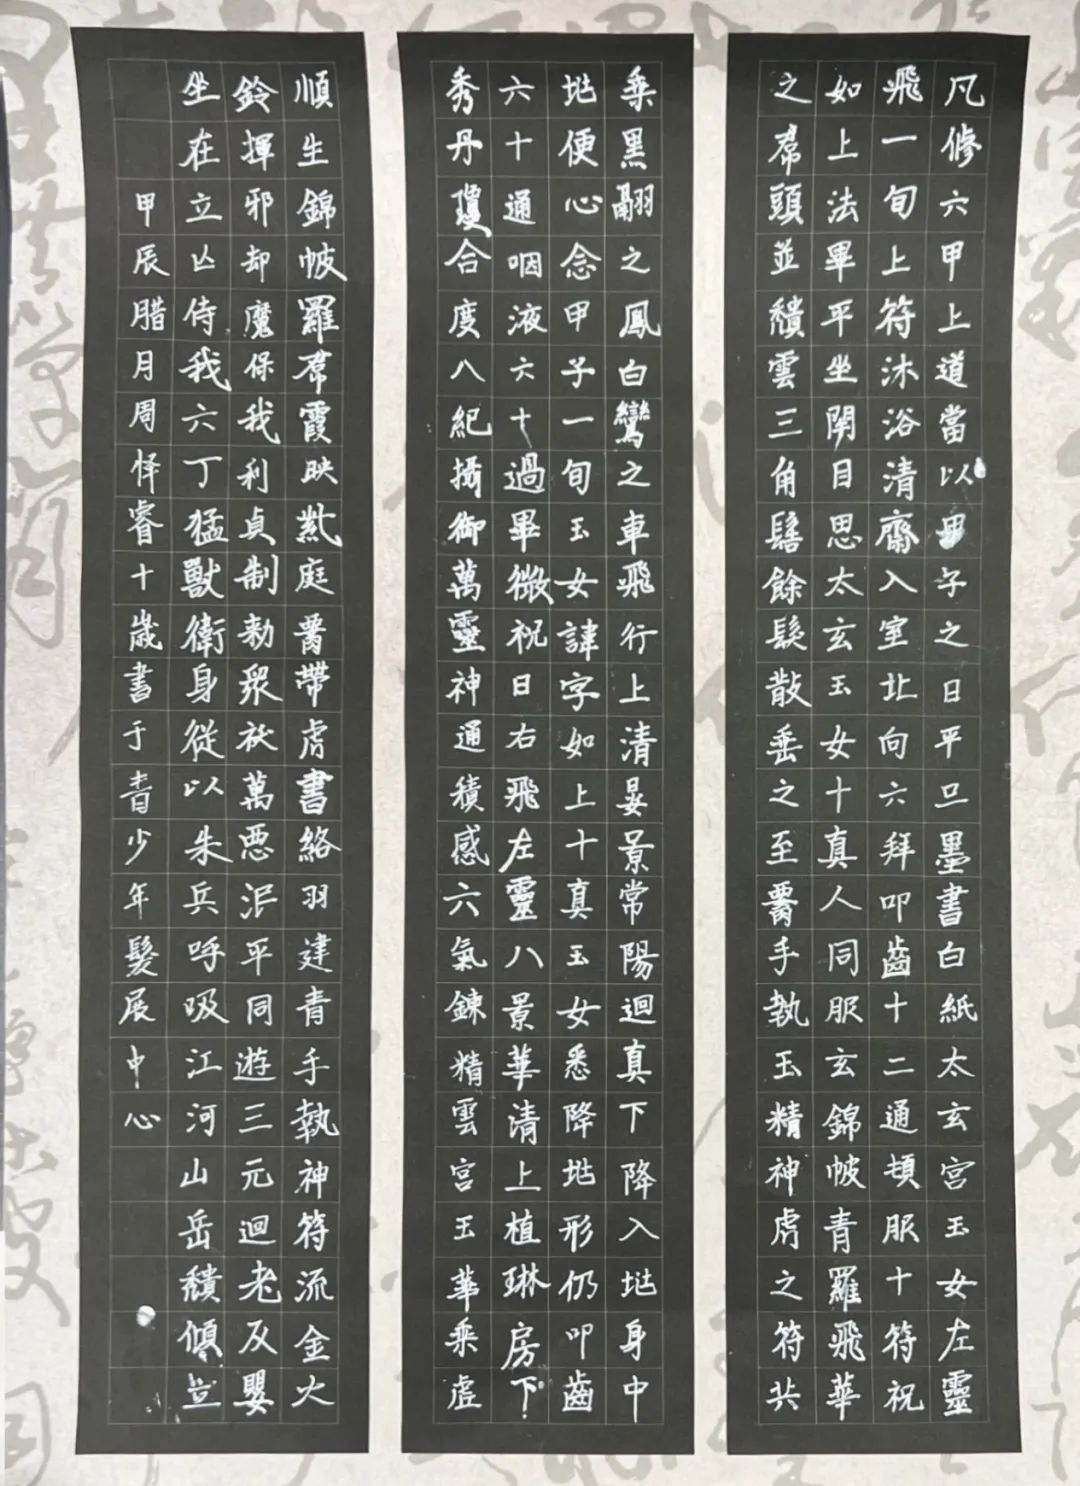 凡修六甲上道當以甲子之日平旦墨書白紙太玄宮玉女左靈
飛一旬上符沐浴清齋入室北向六拜叩齒十二通頓服十符祝
如上法畢平坐閉目思太玄玉女十真人同服玄錦帔青羅飛華
之帬頭並穨雲三角髻餘髮散垂之至胷手執玉精神虎之符共
乘黑翮之鳳白鸞之車飛行上清晏景常陽迴真下降入坒身中
坒便心念甲子一旬玉女諱字如上十真玉女悉降坒形仍叩齒
六十通咽液六十過畢微祝曰右飛左靈八景華清上植琳房下
秀丹瓊合度八紀攝御萬靈神通積感六氣鍊精雲宮玉華乘虛
順生錦帔羅帬霞映紫庭胷帶虎書絡羽建青手執神符流金火
鈴揮邪却魔保我利貞制勑眾祅萬惡泯平同遊三元迴老反嬰
坐在立亾侍我六丁猛獸衛身從以朱兵呼吸江河山岳穨傾立
甲辰腊月周怿睿十歲書于青少年發展中心